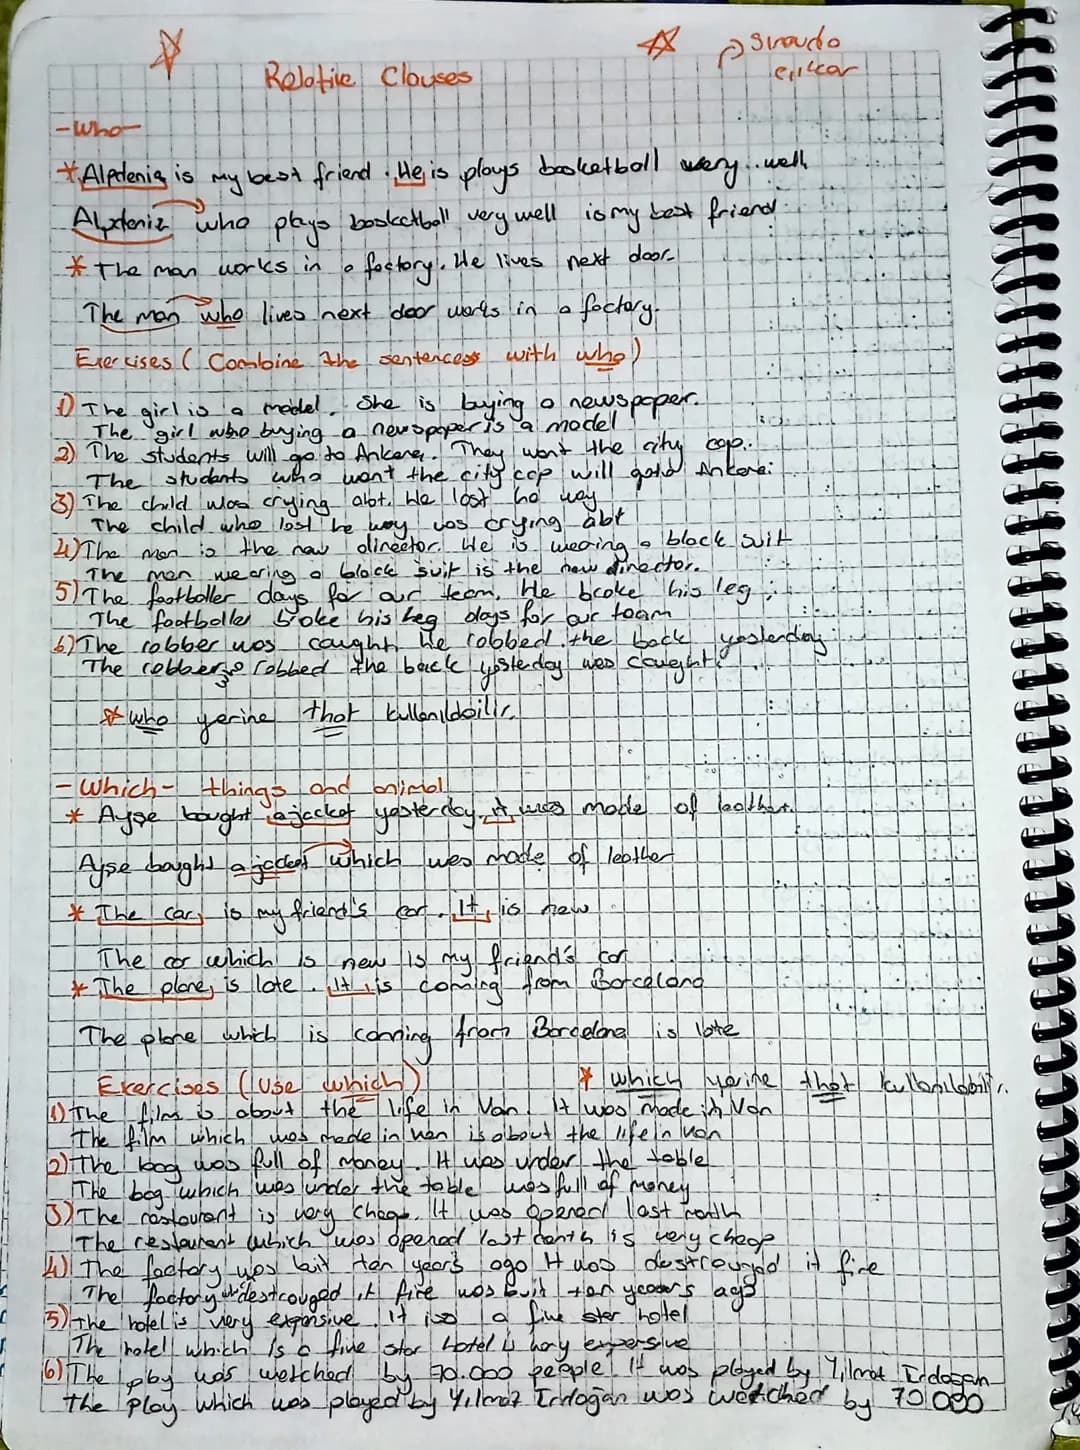 Relative Clauses
-Who-
* Alpdeniz is my best friend. He is plays basketball very well
Alpdeniz who plays basketball very well is my best friend
* The man works in a factory. He lives next door.
The man who lives next door works in a factory.
Exercises ( Combine the sentencess with who )
1) The girl is a model. She is buying a newspaper.
The girl who buying a newspaper is a model
2) The students will go to Ankara. They want the city cap.
The students who want the city cap will goto Ankara.
3) The child was crying abt. He lost he way
The child who lost he way was crying abt
4) The man is the new director. He is wearing a black suit
The man wearing a black suit is the new director.
5) The footballer days for our team. He broke his leg
The footballer broke his leg days for our team
6) The robber was caught. He robbed the back yesterday
The robber robbed the back yesterday was caught.
* who yerine that kullanılabilir.
-Which- things and animal
* Ayşe bought a jacket yesterday. it was made of leather.
Ayşe bought a jacket which was made of leather
* The car is my friend's car. It is new
The car which is new is my friend's car
* The plane is late. It is coming from Barcelona
The plane which is coming from Barcelona is late
Exercises (Use which) * which yerine that kullanılabilir.
1) The film is about the life in Van. It was made in Van
The film which was made in van is about the life in van
2) The bag was full of money. It was under the table
The bag which was under the table was full of money
3) The restaurant is very cheap. It was opened last month
The restaurant which was opened last month is very cheap
4) The factory was buit ten years ago It was destrouyed it fire
The factory destrouged it fire was buit ten years ago
5) The hotel is very expensive. It is a five star hotel
The hotel which is a five star hotel is very expensive
6) The play was watched by 70.000 people. It was played by Yılmaz Erdogan
The play which was played by Yılmaz Erdoğan was watched by 70.000